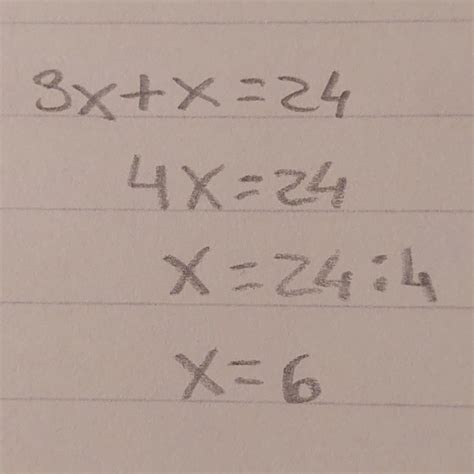 3x+x=24
4x=24
x=24:4
x=6